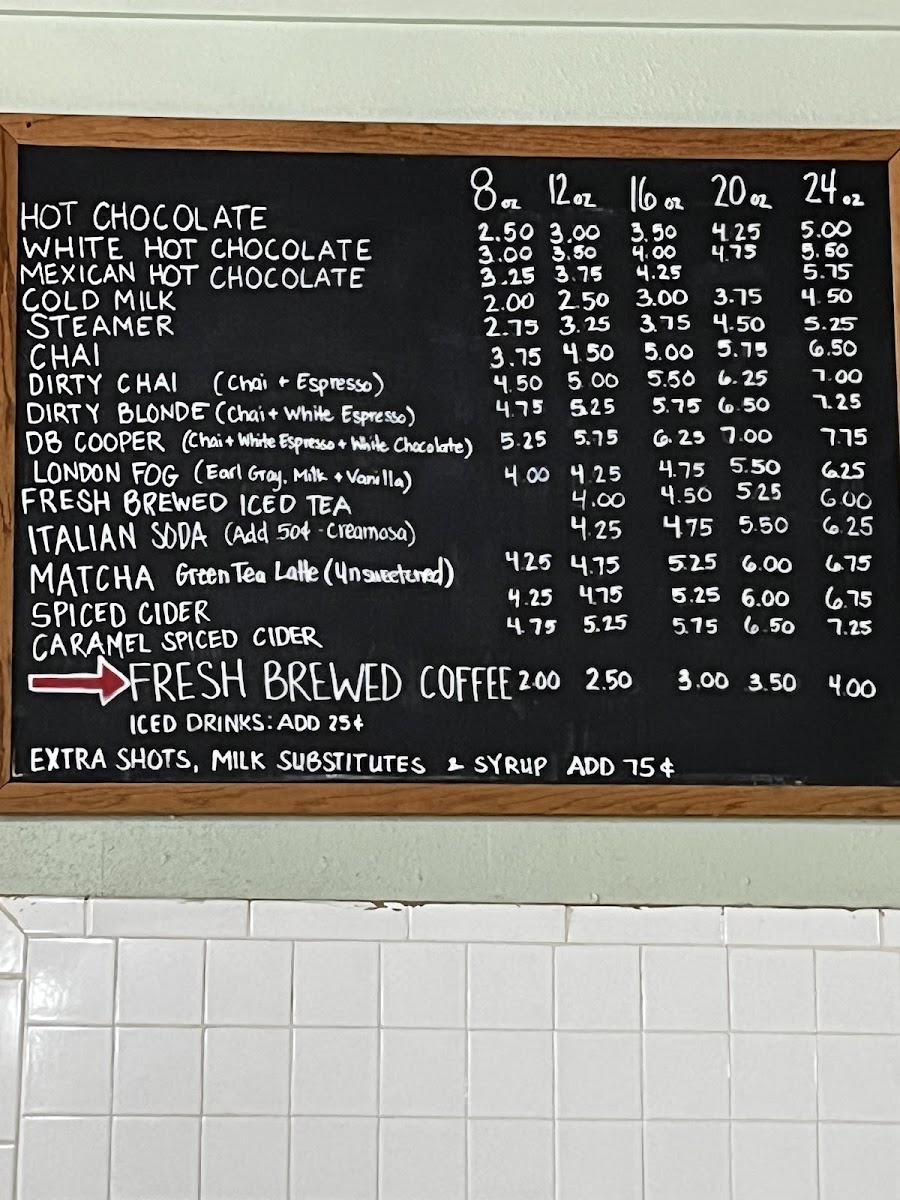 8 oz 12 oz 16 oz 20 oz 24 oz
HOT CHOCOLATE 2.50 3.00 3.50 4.25 5.00
WHITE HOT CHOCOLATE 3.00 3.50 4.00 4.75 5.50
MEXICAN HOT CHOCOLATE 3.25 3.75 4.25 5.75
COLD MILK 2.00 2.50 3.00 3.75 4.50
STEAMER 2.75 3.25 3.75 4.50 5.25
CHAI 3.75 4.50 5.00 5.75 6.50
DIRTY CHAI (Chai + Espresso) 4.50 5.00 5.50 6.25 7.00
DIRTY BLONDE (Chai + White Espresso) 4.75 5.25 5.75 6.50 7.25
DB COOPER (Chai + White Espresso + White Chocolate) 5.25 5.75 6.25 7.00 7.75
LONDON FOG (Earl Gray, Milk + Vanilla) 4.00 4.25 4.75 5.50 6.25
FRESH BREWED ICED TEA 4.00 4.50 5.25 6.00
ITALIAN SODA (Add 50¢ - Creamosa) 4.25 4.75 5.50 6.25
MATCHA Green Tea Latte (Unsweetened) 4.25 4.75 5.25 6.00 6.75
SPICED CIDER 4.25 4.75 5.25 6.00 6.75
CARAMEL SPICED CIDER 4.75 5.25 5.75 6.50 7.25
FRESH BREWED COFFEE 2.00 2.50 3.00 3.50 4.00
ICED DRINKS: ADD 25¢
EXTRA SHOTS, MILK SUBSTITUTES & SYRUP ADD 75¢